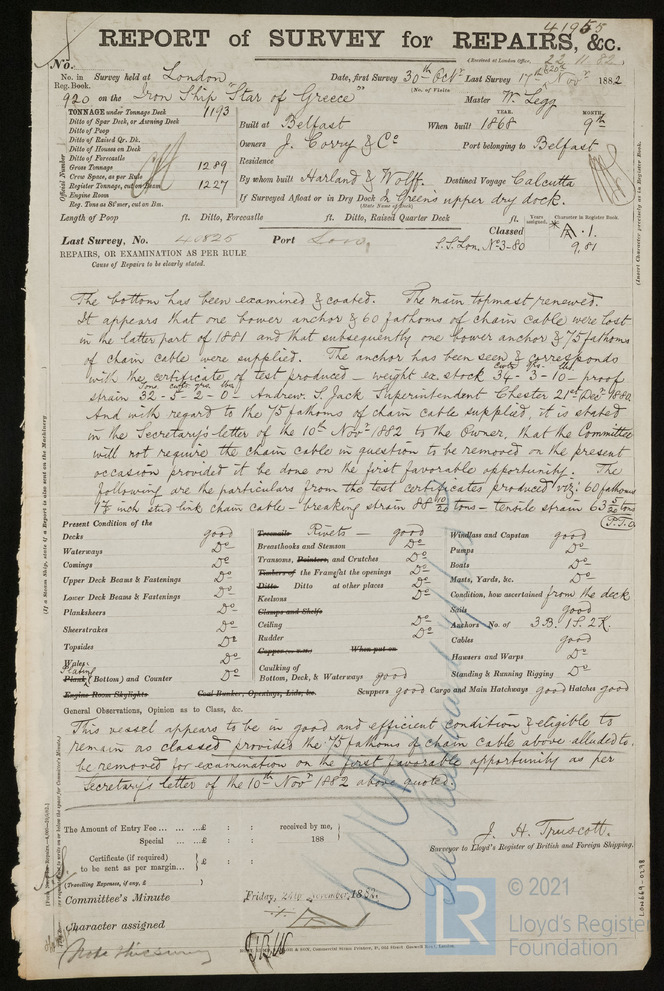 41955
REPORT of SURVEY for REPAIRS, &c.
(Received at London Office, 22.11.82.
No.
No. in Reg. Book. Survey held at London Date, first Survey 30th Octr Last Survey 17th Novr 1882
(No. of Visits
920 on the Iron Ship "Star of Greece" Master W. Legg
TONNAGE under Tonnage Deck 1193
Ditto of Spar Deck, or Awning Deck
Ditto of Poop
Ditto of Raised Qr. Dk.
Ditto of Houses on Deck
Ditto of Forecastle
Gross Tonnage 1289
Crew Space, as per Rule
Register Tonnage, cut on Beam 1227
Engine Room
Reg. Tons as St'mer, cut on Bm.
Official Number
YEAR. MONTH.
Built at Belfast When built 1868 9th
Owners J. Corry & Co Port belonging to Belfast
Residence
By whom built Harland & Wolff. Destined Voyage Calcutta
If Surveyed Afloat or in Dry Dock In Greens upper dry dock.
(State Name of Dock)
Length of Poop ft. Ditto, Forecastle ft. Ditto, Raised Quarter Deck ft.
Years assigned. Character in Register Book.
Last Survey, No. 40825 Port Lon. Classed A.1.
S.S.Lon. No3-80 9,81
REPAIRS, OR EXAMINATION AS PER RULE
Cause of Repairs to be clearly stated.
The bottom has been examined & coated. The main topmast renewed.
It appears that one bower anchor & 60 fathoms of chain cable were lost
in the latter part of 1881 and that subsequently one bower anchor & 75 fathoms
of chain cable were supplied. The anchor has been seen & corresponds
with the certificate of test produced – weight ex stock 34-3-10 – proof
strain 32-5-2-0 – Andrew. S. Jack Superintendent Chester 21st Decr 1880
And with regard to the 75 fathoms of chain cable supplied, it is stated
in the Secretary's letter of the 10th Novr 1882 to the Owner, that the Committee
will not require the chain cable in question to be removed on the present
occasion provided it be done on the first favorable opportunity. The
following are the particulars from the test certificates produced viz: 60 fathoms
inch stud link chain cable – breaking strain 88 10/20 tons – tensile strain 63 5/20 tons
(P.T.O.)
Present Condition of the
Decks good
Waterways Do
Comings Do
Upper Deck Beams & Fastenings Do
Lower Deck Beams & Fastenings Do
Planksheers Do
Sheerstrakes Do
Topsides Do
Wales Do
Plank (Bottom) and Counter Plating Do
Engine Room Skylights
Coal Bunker, Openings, Lids, &c.
Treenails Rivets – good
Breasthooks and Stemson Do
Transoms, Pointers, and Crutches Do
Timbers of the Frames at the openings Do
Ditto Ditto at other places Do
Keelsons Do
Clamps and Shelfs
Ceiling Do
Rudder Do
Copper &c. When put on
Caulking of
Bottom, Deck, & Waterways good
Windlass and Capstan good
Pumps Do
Boats Do
Masts, Yards, &c. Do
Condition, how ascertained from the deck
Sails good
Anchors No. of 3.B. 1.S. 2.K.
Cables good
Hawsers and Warps Do
Standing & Running Rigging Do
Scuppers good Cargo and Main Hatchways good Hatches good
General Observations, Opinion as to Class, &c.
This vessel appears to be in good and efficient condition & eligible to
remain as classed provided the 75 fathoms of chain cable above alluded to,
be removed for examination on the first favorable opportunity as per
Secretary's letter of the 10th Novr 1882 above quoted.
The Amount of Entry Fee ... ... ...£ : : received by me,
Special ... ...£ : : 188
Certificate (if required) to be sent as per margin... £ : :
(Travelling Expenses, if any, £ )
J. H. Truscott.
Surveyor to Lloyd's Register of British and Foreign Shipping.
Committee's Minute Friday, 24th November, 1882.
Character assigned
(If a Steam Ship, state if a Report is also sent on the Machinery
(Insert Character precisely as in Register Book.
LON669-0298
© 2021
LR
Lloyd's Register
Foundation